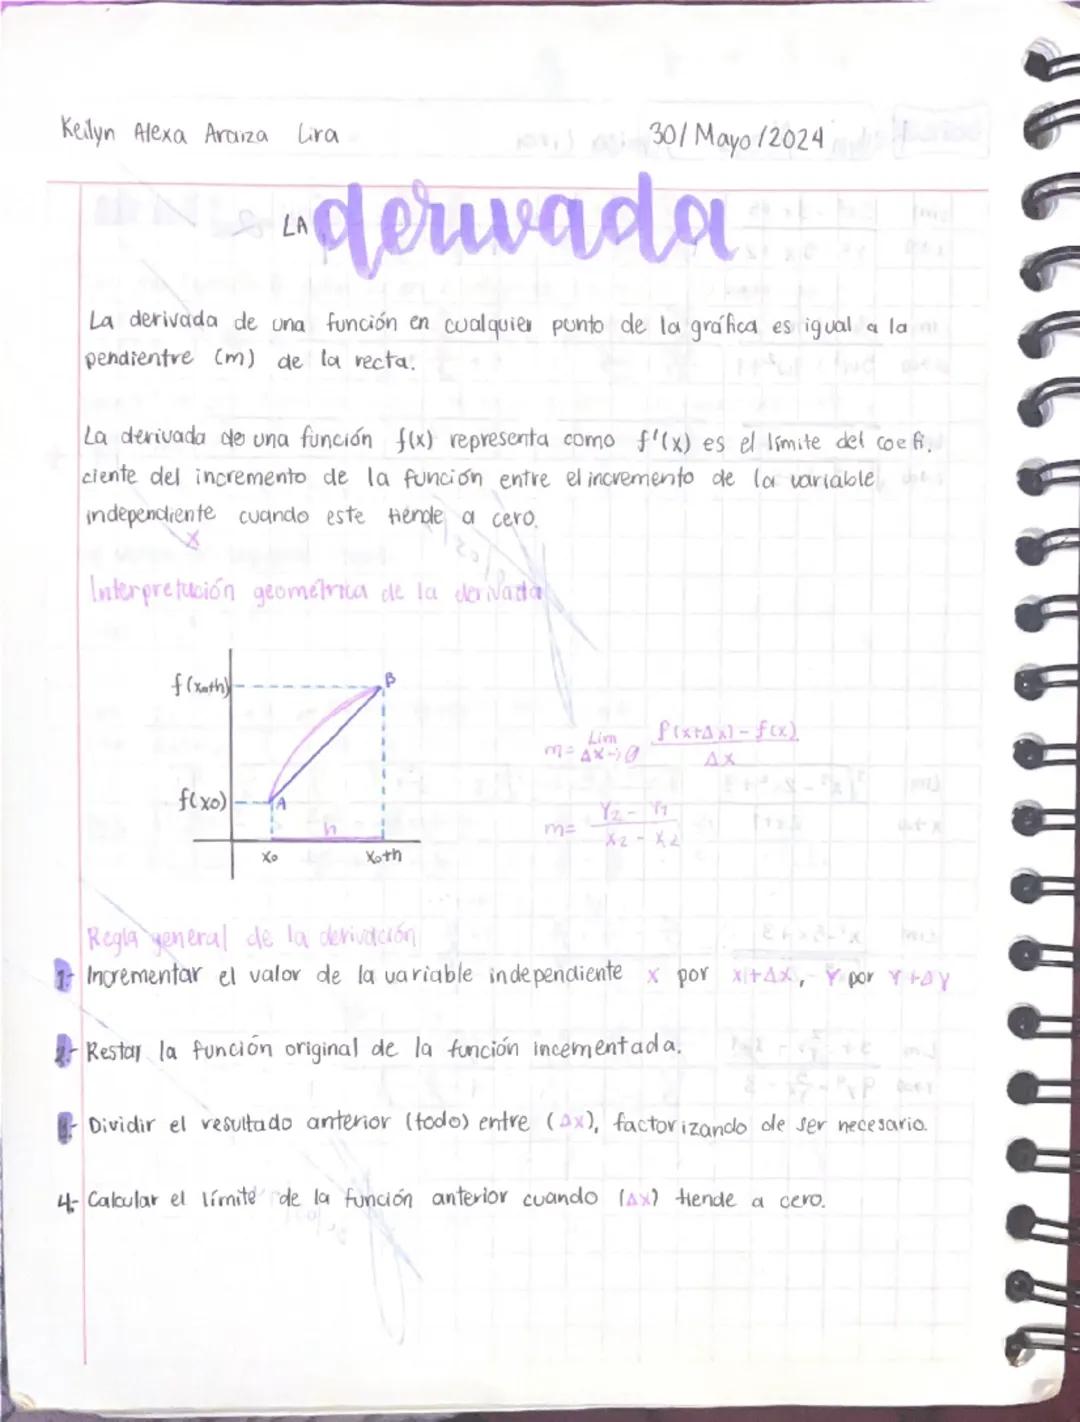 Keilyn Alexa Araiza Lira
30/Mayo/2024
LA derivada
La derivada de una función en cualquier punto de la gráfica es igual a la
pendientre (m) de la recta.
La derivada de una función f(x) representa como f'(x) es el límite del coefi.
ciente del incremento de la función entre el incremento de la variable
independiente cuando este tiende a cero.
x
Interpretación geométrica de la derivada
f(x₀+h)
B
f(x₀)
A
h
x₀
x₀+h
m= Lim Δx→0 f(x+Δx)-f(x) / Δx
m= Y₂ - Y₁ / X₂ - X₂
Regla general de la derivación
1.- Incrementar el valor de la variable independiente x por x+Δx, - Y por Y+ΔY
2.- Restar la función original de la función incementada.
3.- Dividir el resultado anterior (todo) entre (Δx), factorizando de ser necesario.
4.- Calcular el límite de la función anterior cuando (Δx) tiende a cero.